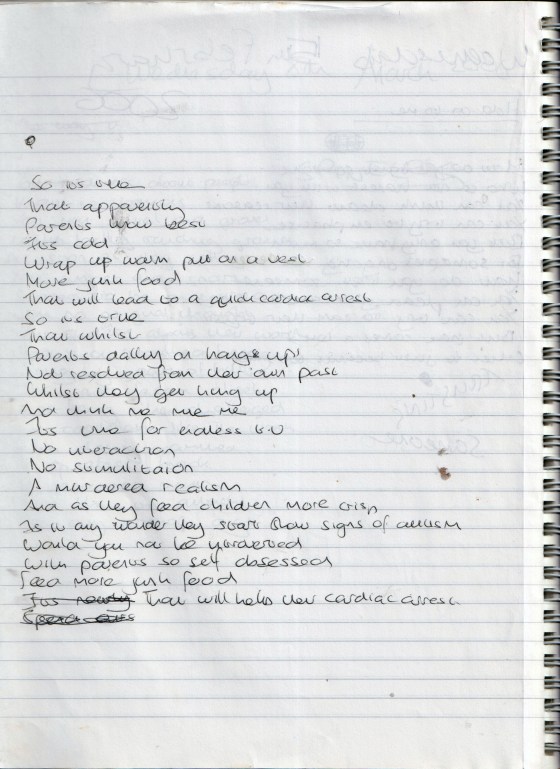 So its true
That apparently
Parents know best
Its odd
Wrap up warm put on a vest
More junk food
That will lead to a quick cardiac arrest
So its true
That whilst
Parents dalley on hangs ups
Not resolved from their own past
Whilst they get hung up
And think me me me
Its time for endless t.v
No interaction
No stimulitaion
A murdered realism
And as they feed children more crisp
Is in any wonder they start show signs of autism
Would you not be unnerved
With parents so self obsessed
Feed more junk food
That will help their cardiac arrest